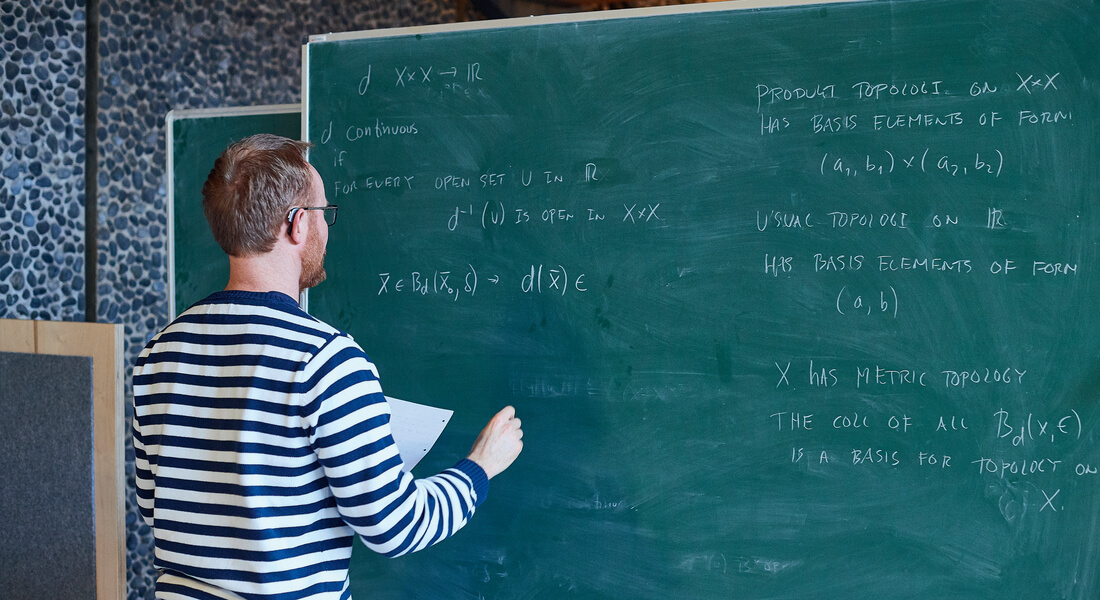 d X×X → ℝ
d continuous
if
FOR EVERY OPEN SET U IN ℝ
d⁻¹(U) IS OPEN IN X×X
x̄ ∈ B_d(x̄₀, δ) → d(x̄) ∈
PRODUKT TOPOLOGI ON X×X
HAS BASIS ELEMENTS OF FORM
(a₁, b₁) × (a₂, b₂)
USUAL TOPOLOGI ON ℝ
HAS BASIS ELEMENTS OF FORM
(a, b)
X HAS METRIC TOPOLOGY
THE COLL OF ALL B_d(x, ϵ)
IS A BASIS FOR TOPOLOGY ON
X.